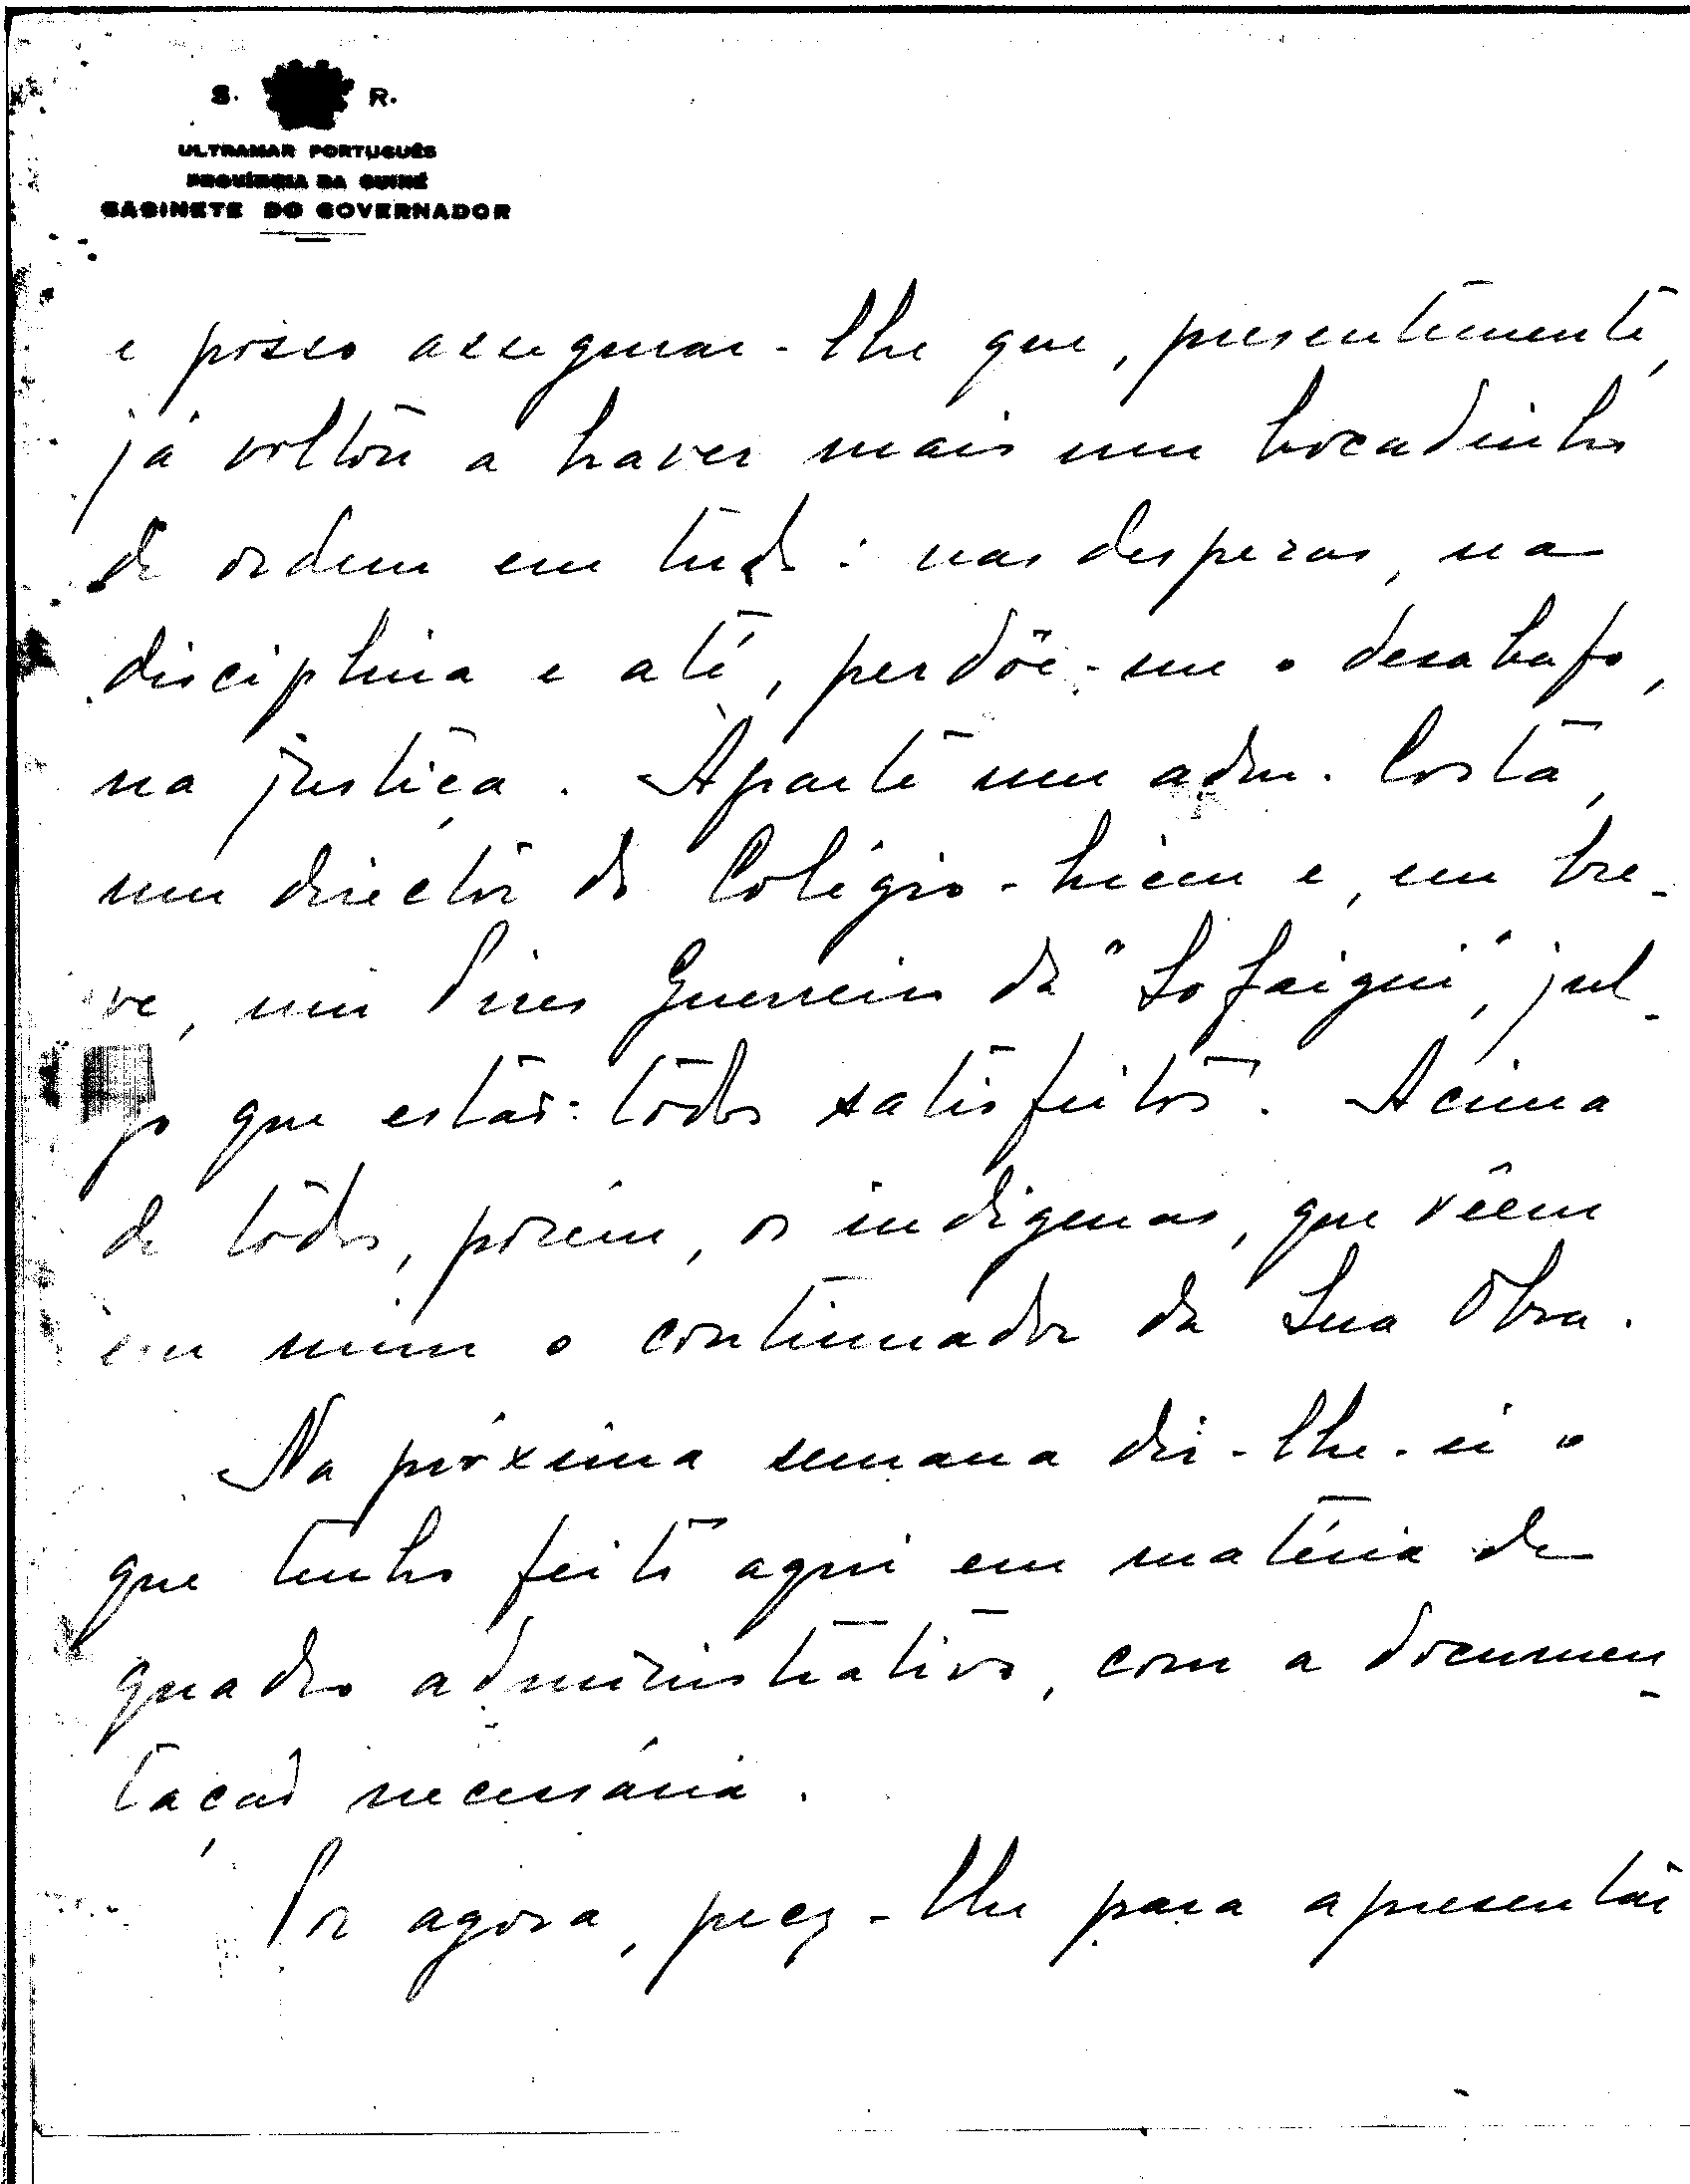 S. R.
ULTRAMAR PORTUGUÊS
PROVÍNCIA DA GUINÉ
GABINETE DO GOVERNADOR
e posso assegurar-lhe que, presentemente,
já voltou a haver mais um bocadinho
de ordem em tudo: nas despezas, na
disciplina e até, perdõe-me o desabafo,
na justiça. Àparte um adm. Costa,
um director do Colégio-Liceu e, em bre-
ve, um Pires Guerreiro da "Sofaigui", jul-
go que estão todos satisfeitos. Acima
de todos, porém, os indígenas, que vêem
em mim o continuador da Sua Obra.
Na próxima semana dir-lhe-ei o
que tenho feito aqui em matéria de
quadro administrativo, com a documen-
tação necessária.
Por agora, peço-lhe para apresentar